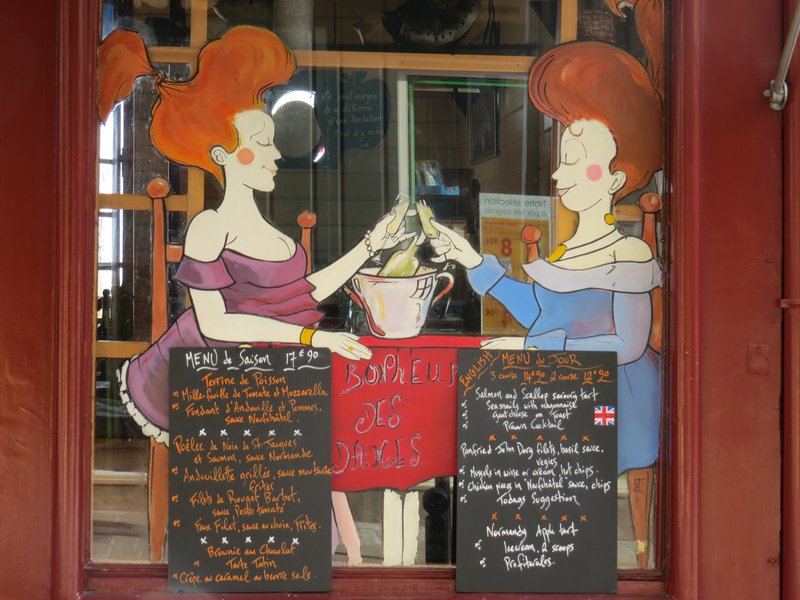 Le seul moyen
de se délivrer
d'une tentation
c'est d'y céder
Notre sélection
à prix soignés
8
€90
BONHEUR
DES
DAMES
MENU de SAISON 17€90
Terrine de Poisson
Mille-feuille de Tomate et Mozzerella
Fondant d'Andouille et Pommes,
sauce Neufchâtel
Poêlée de Noix de St. Jacques
et Saumon, sauce Normande
Andouillette grillée, sauce moutarde
frites
Filets de Rouget Barbet,
sauce Pesto tomaté
Faux Filet, sauce au choix, Frites.
Brownie au Chocolat
Tarte Tatin
Crêpe au caramel au beurre salé.
ENGLISH MENU du JOUR
3 course 14€90 2 course 12€90
Salmon and Scallop savoury tart
Seasnails with mayonnaise
Goat cheese on Toast
Prawn Cocktail
Panfried John Dory filets, basil sauce,
vegies
Mussels in wine or cream, hot chips.
Chicken pieces in Neufchâtel sauce, chips
Todays Suggestion
Normandy Apple tart
Icecream, 2 scoops
Profiteroles.